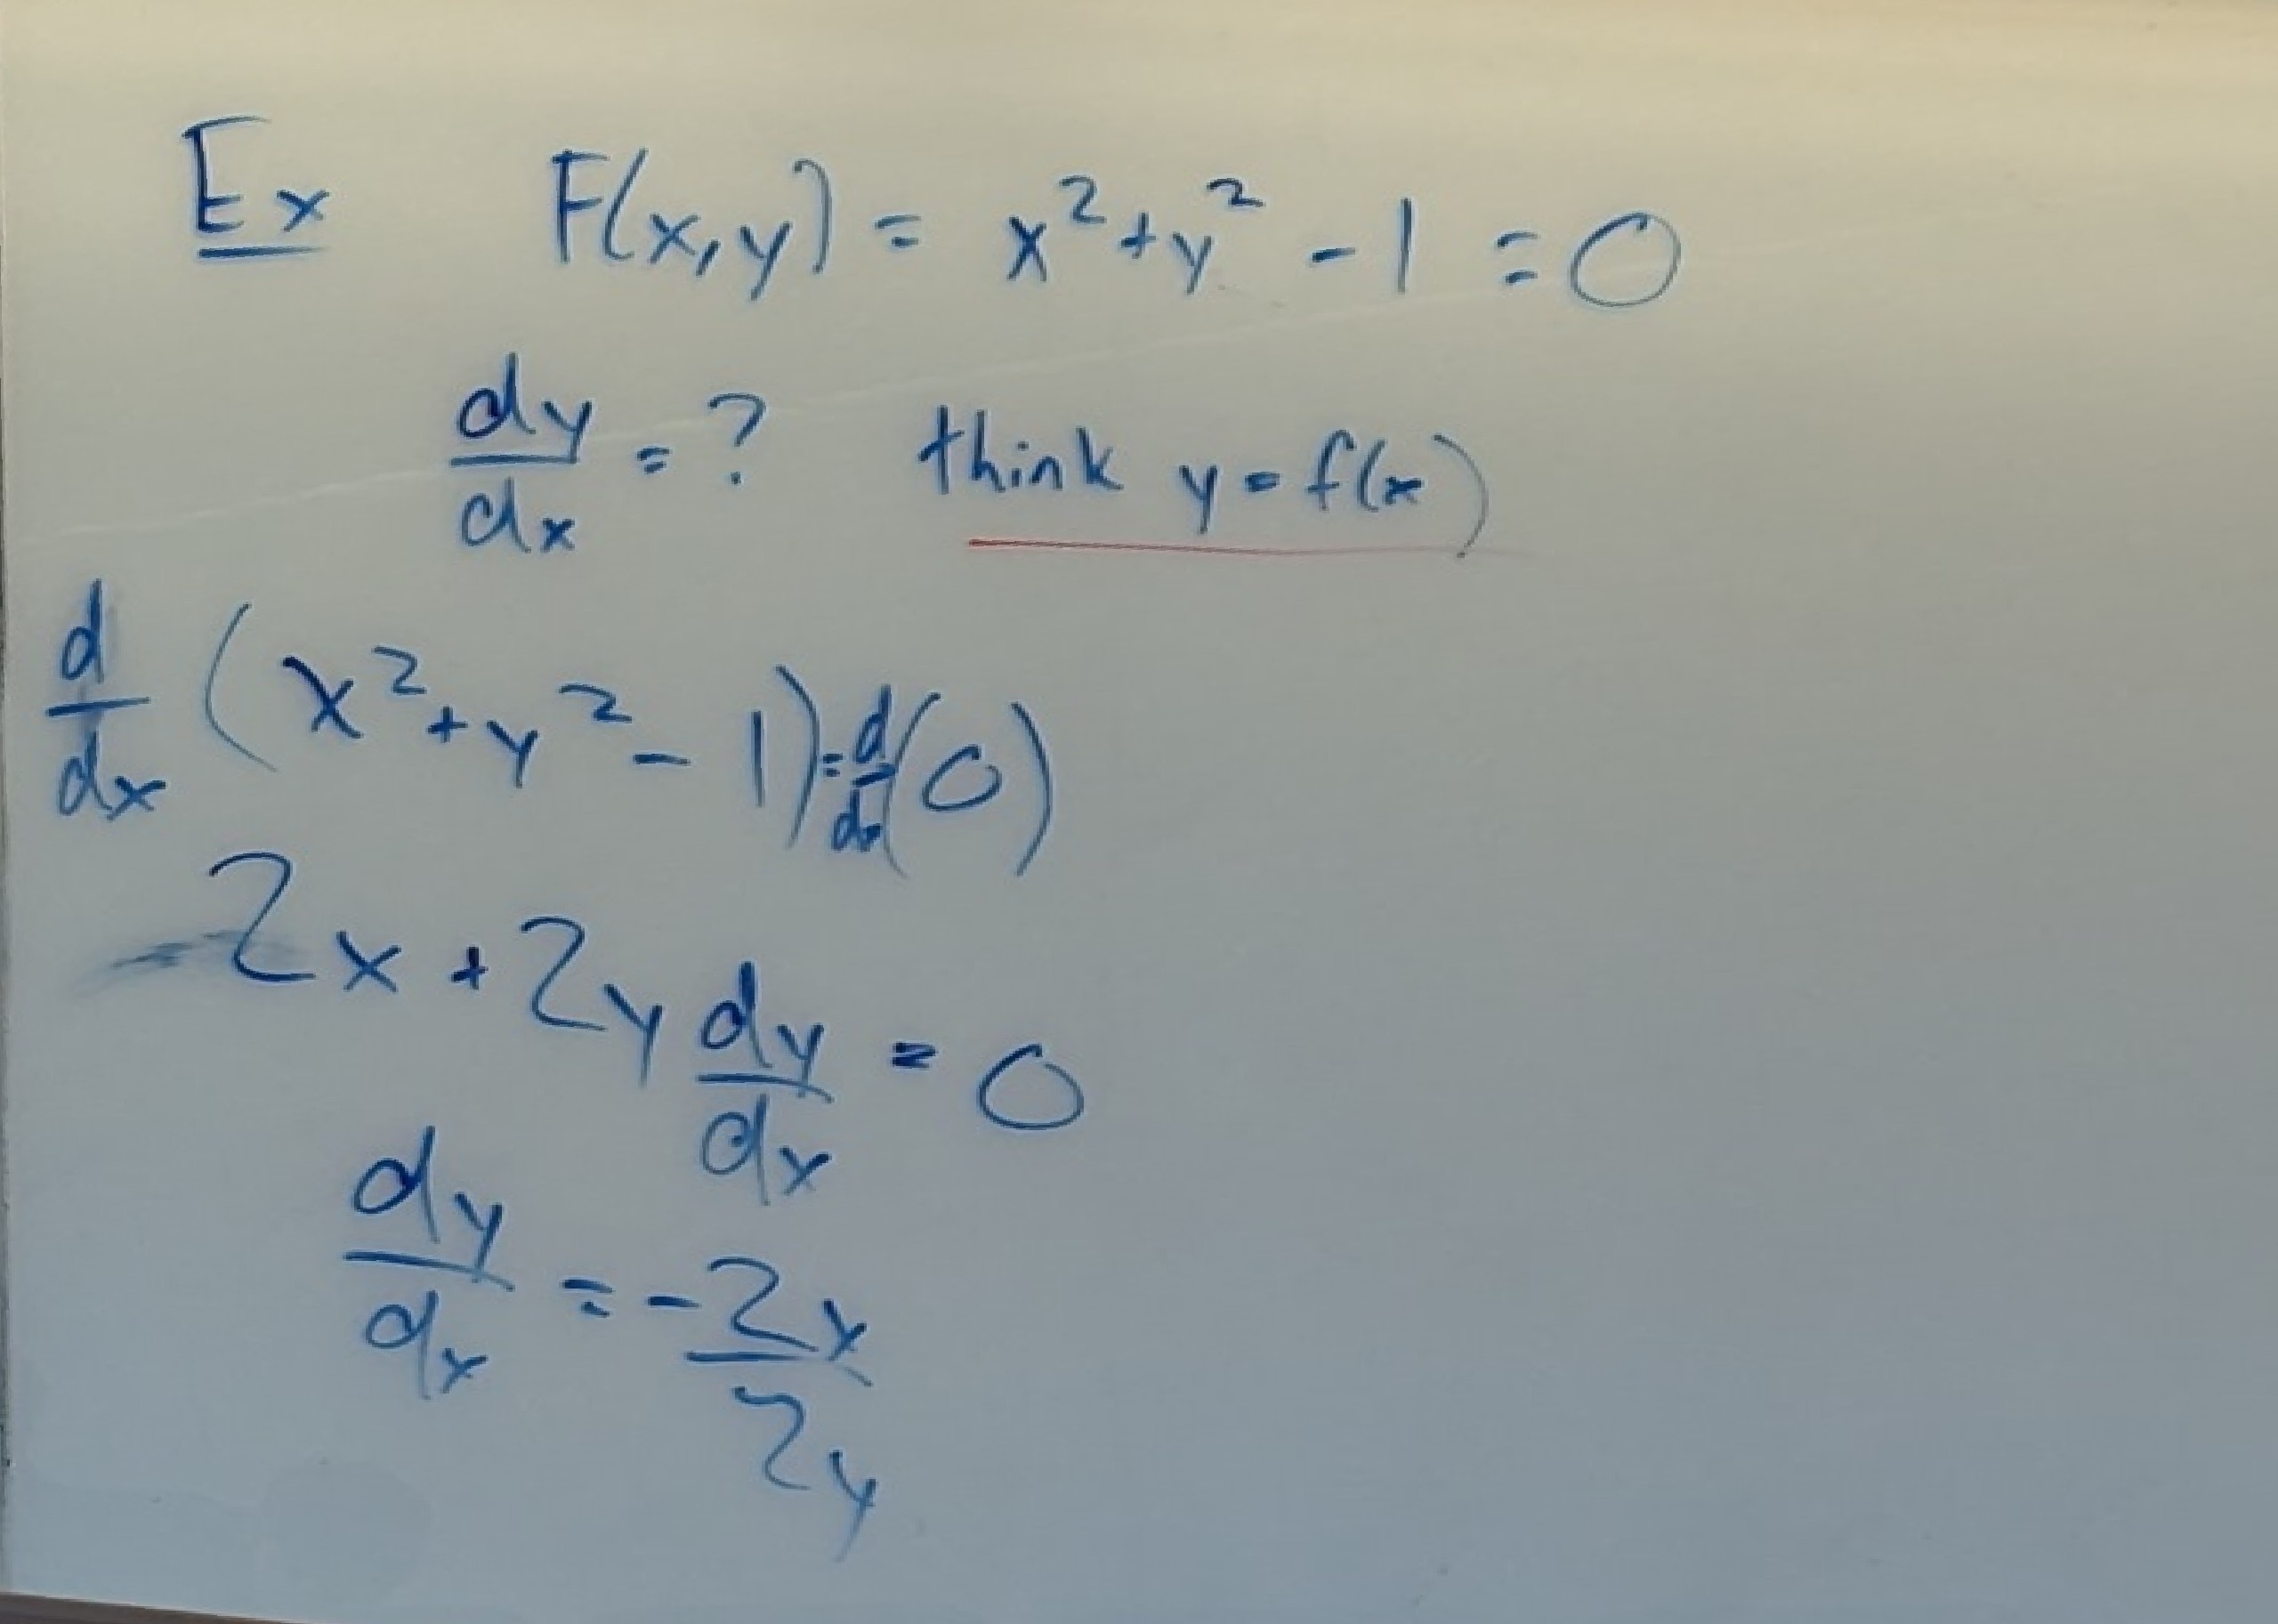 Ex F(x,y) = x² + y² - 1 = 0
dy/dx = ? think y = f(x)
d/dx (x² + y² - 1) = d/dx (0)
2x + 2y dy/dx = 0
dy/dx = -2x/2y